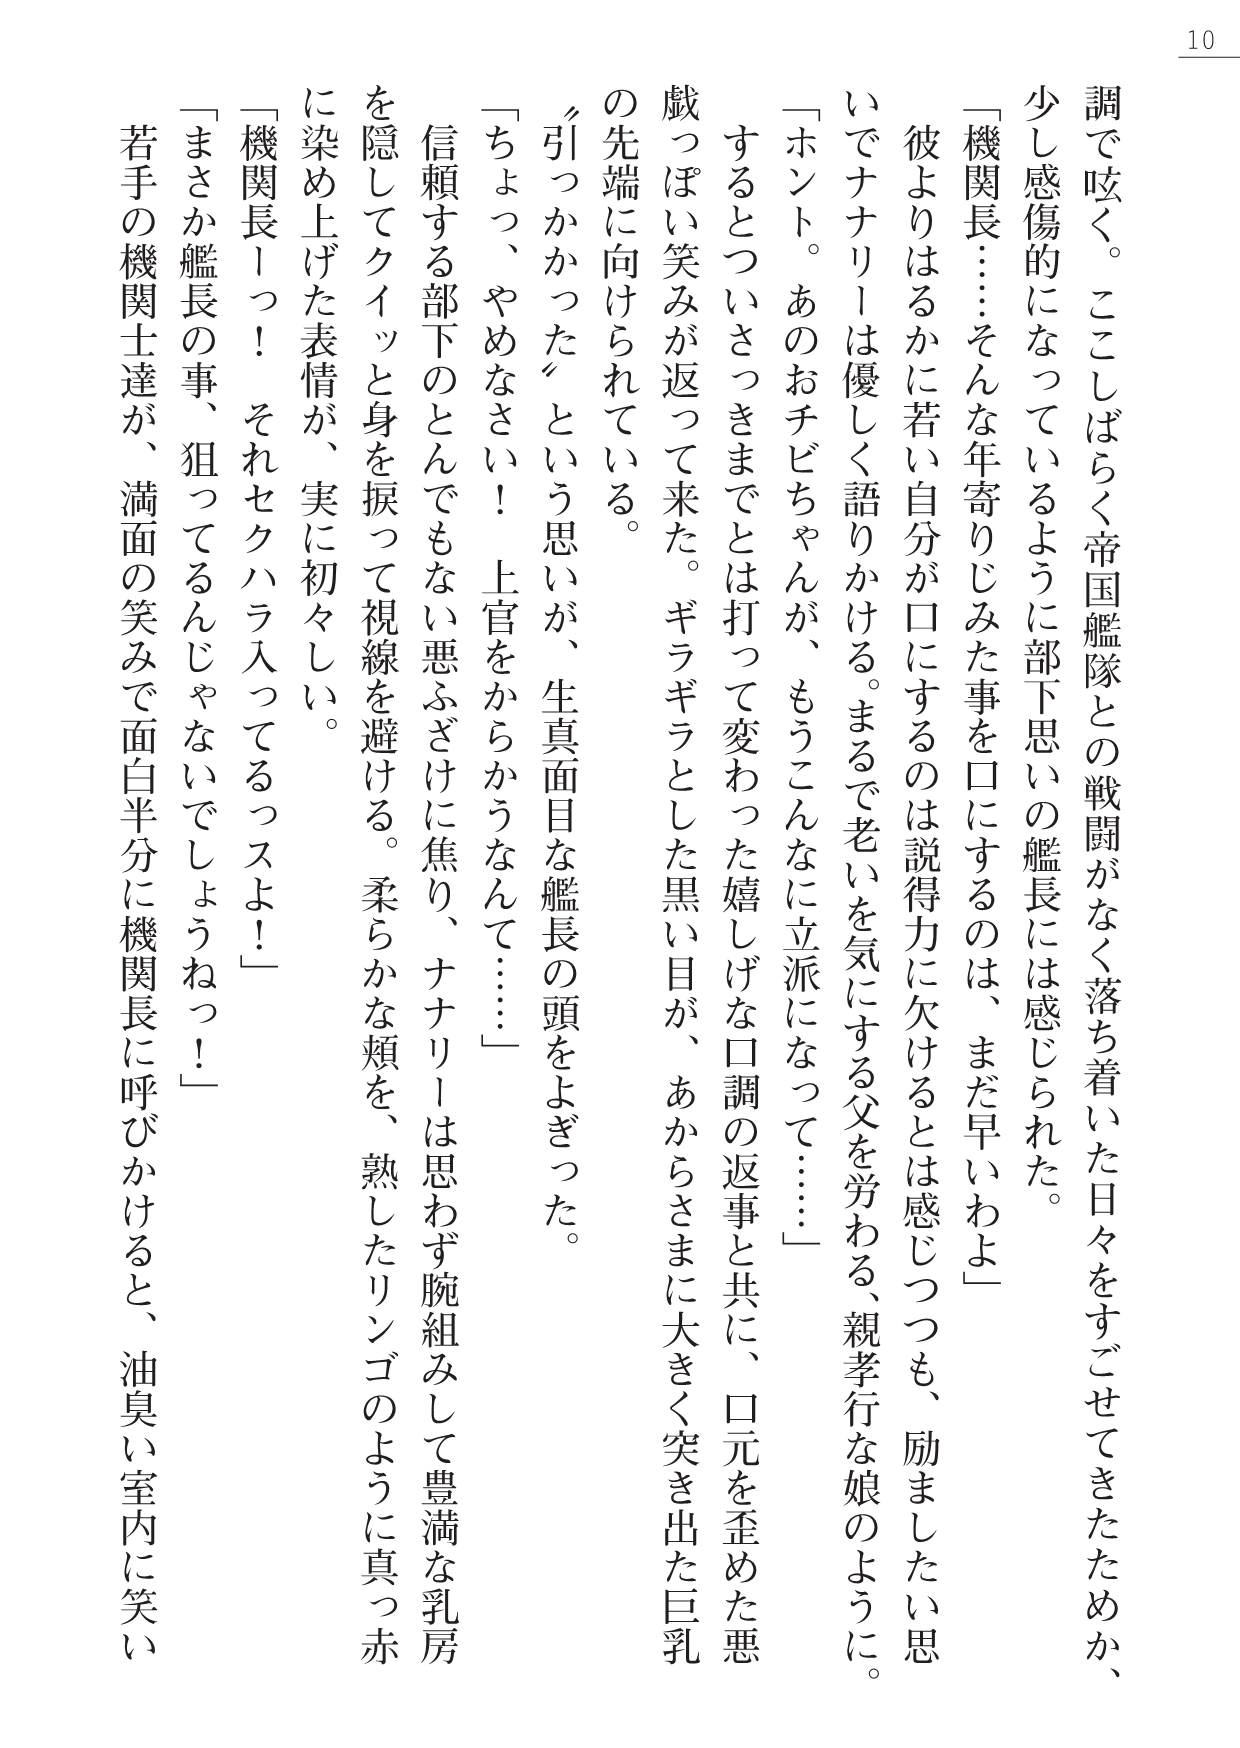 10
調で呟く。ここしばらく帝国艦隊との戦闘がなく落ち着いた日々をすごせてきたためか、
少し感傷的になっているように部下思いの艦長には感じられた。
「機関長……そんな年寄りじみた事を口にするのは、まだ早いわよ」
　彼よりはるかに若い自分が口にするのは説得力に欠けるとは感じつつも、励ましたい思
いでナナリーは優しく語りかける。まるで老いを気にする父を労わる、親孝行な娘のように。
「ホント。あのおチビちゃんが、もうこんなに立派になって……」
　するとついさっきまでとは打って変わった嬉しげな口調の返事と共に、口元を歪めた悪
戯っぽい笑みが返って来た。ギラギラとした黒い目が、あからさまに大きく突き出た巨乳
の先端に向けられている。
〝引っかかった〟という思いが、生真面目な艦長の頭をよぎった。
「ちょっ、やめなさい！　上官をからかうなんて……」
　信頼する部下のとんでもない悪ふざけに焦り、ナナリーは思わず腕組みして豊満な乳房
を隠してクイッと身を捩って視線を避ける。柔らかな頬を、熟したリンゴのように真っ赤
に染め上げた表情が、実に初々しい。
「機関長ーっ！　それセクハラ入ってるっスよ！」
「まさか艦長の事、狙ってるんじゃないでしょうねっ！」
　若手の機関士達が、満面の笑みで面白半分に機関長に呼びかけると、油臭い室内に笑い